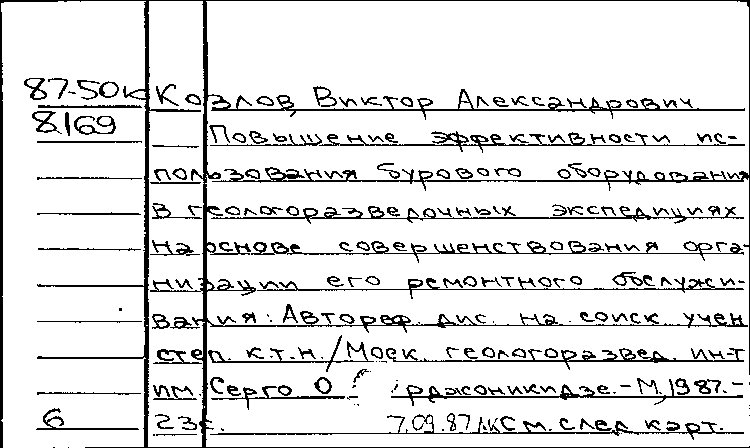 87-50к Козлов, Виктор Александрович
8169 Повышение эффективности ис-
пользования бурового оборудования
в геологоразведочных экспедициях
на основе совершенствования орга-
низации его ремонтного обслужи-
вания: Автореф. дис. на соиск. учен
степ. к.т.н. / Моск. геологоразвед. ин-т
им. Серго Орджоникидзе. - М, 1987. -
6 23с. 7.09.87 См. след карт.